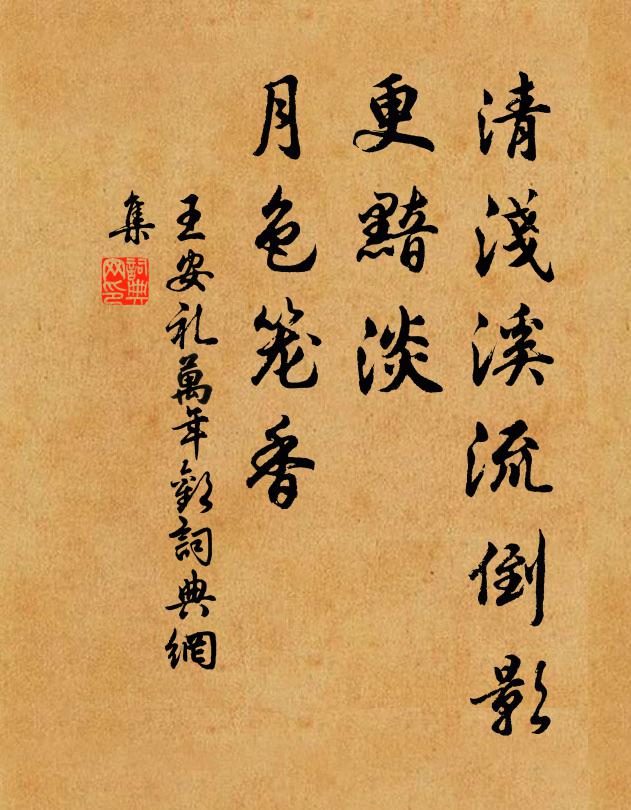 清淺溪流倒影
更黯淡
月色笼香
王安礼萬年歡詞典網
集
詞典
网印